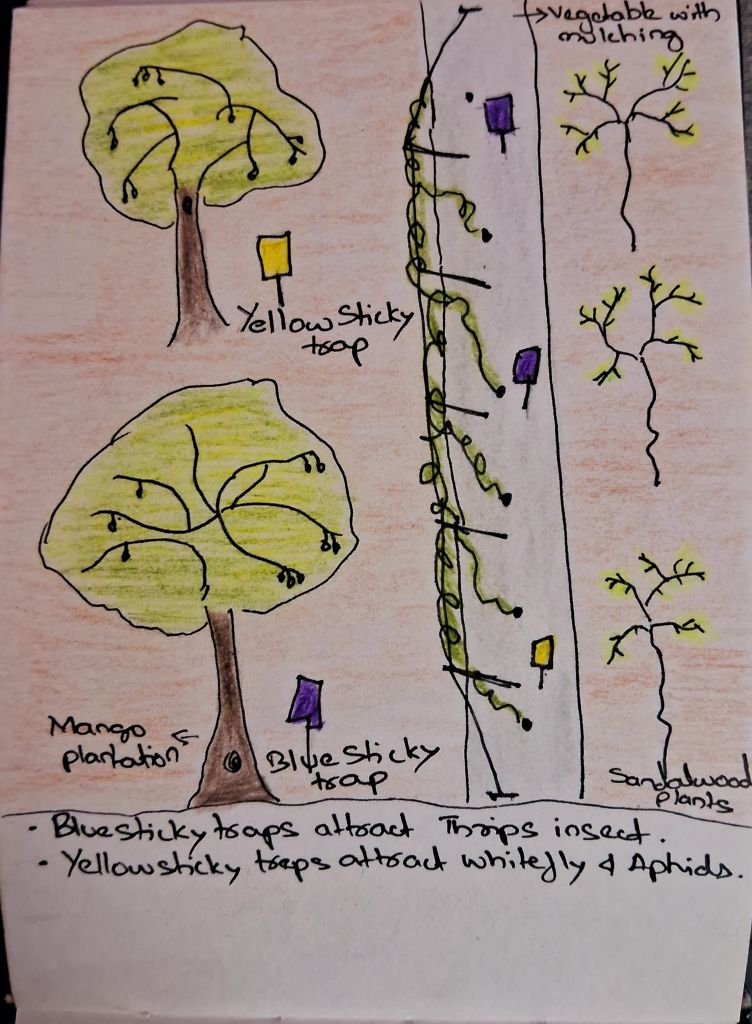 Vegetable with
mulching
Yellow Sticky
trap
Mango
plantation
Blue Sticky
trap
Sandalwood
plants
- Blue sticky traps attract Thrips insect.
- Yellow sticky traps attract whitefly & Aphids.